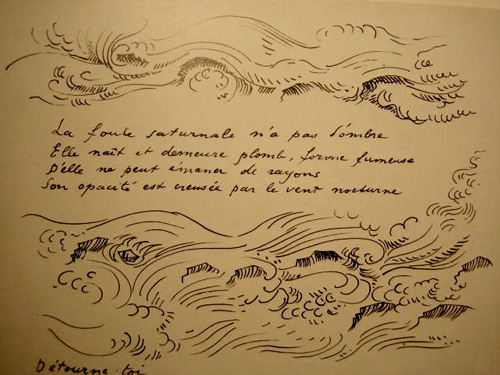 La foule saturnale n'a pas d'ombre
Elle naît et demeure plomb, forme fumeuse
D'elle ne peut émaner de rayons
Son opacité est creusée par le vent nocturne
Détourne-toi